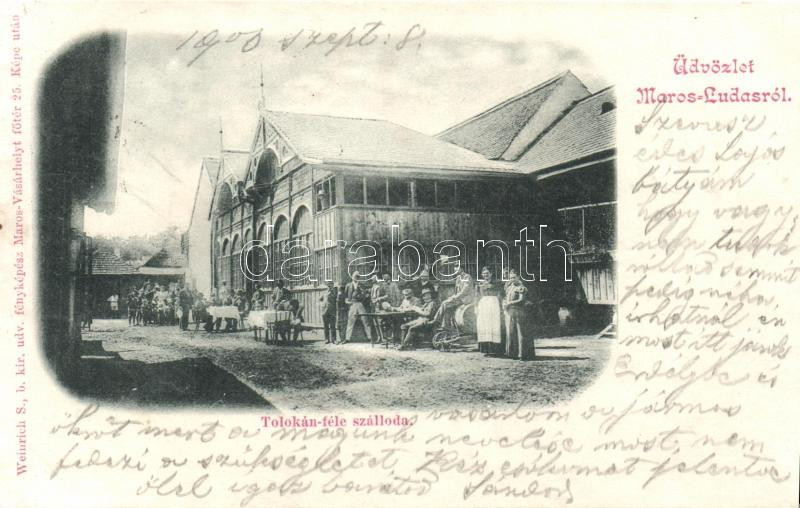 1900 szept: 8.
Üdvözlet
Maros-Ludasról.
Szervusz
édes Lajos
bátyám
hogy vagy,
nem tudok
rólad semmit
pedig néha
írhatnál én
most itt járok
Erdélybe és
vásárlom a jármos
ökröt mert a magunk nevelése most nem
fedezi a szükségletet, Kéz csókumat jelentve
ölel igaz barátod Sándor
Tolokán-féle szálloda.
Weinrich S., b. kir. udv. fényképész Maros-Vásárhelyt főtér 25. Képe után
darabanth